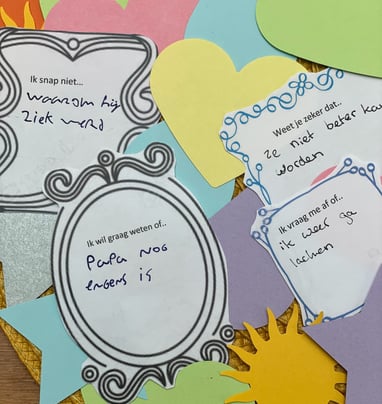 Ik snap niet...
waarom hij
ziek werd
Weet je zeker dat..
ze niet beter kan
worden
Ik wil graag weten of..
Papa nog
ergens is
Ik vraag me af of..
ik weer ga
lachen